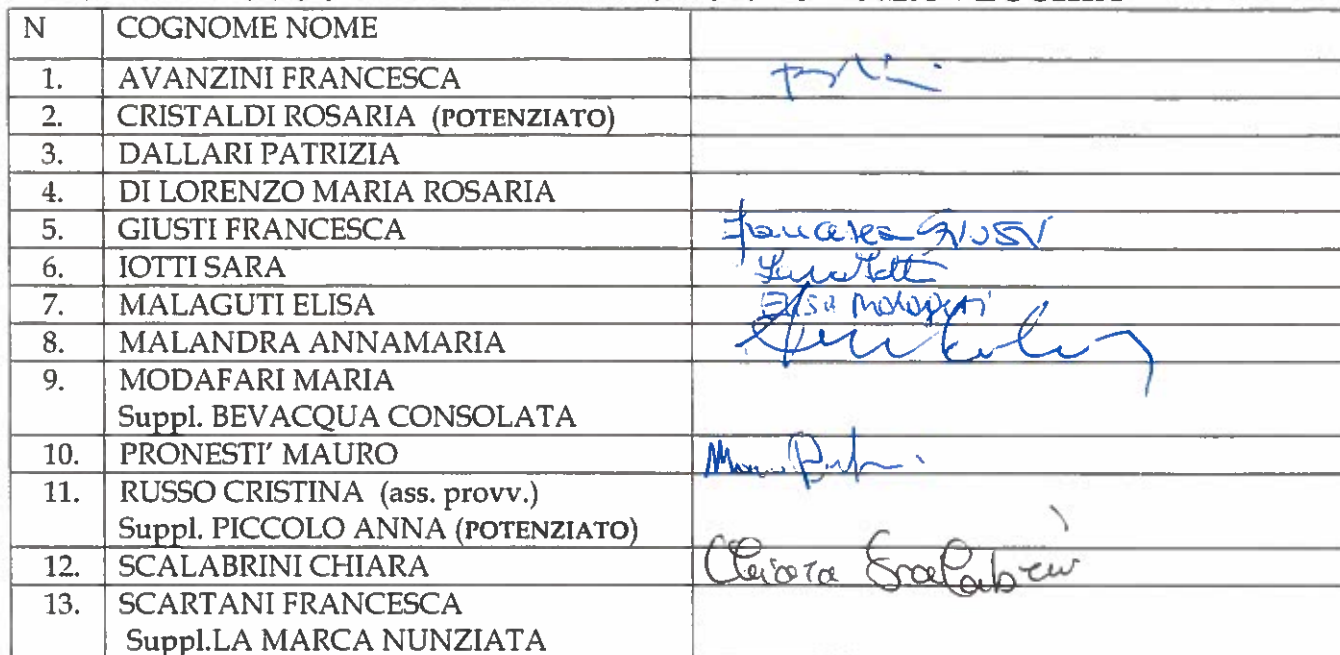 N COGNOME NOME
1. AVANZINI FRANCESCA
2. CRISTALDI ROSARIA (POTENZIATO)
3. DALLARI PATRIZIA
4. DI LORENZO MARIA ROSARIA
5. GIUSTI FRANCESCA Francesca GIUSTI
6. IOTTI SARA
7. MALAGUTI ELISA Elisa Malaguti
8. MALANDRA ANNAMARIA
9. MODAFARI MARIA
Suppl. BEVACQUA CONSOLATA
10. PRONESTI' MAURO
11. RUSSO CRISTINA (ass. provv.)
Suppl. PICCOLO ANNA (POTENZIATO)
12. SCALABRINI CHIARA Chiara Scalabrini
13. SCARTANI FRANCESCA
Suppl.LA MARCA NUNZIATA